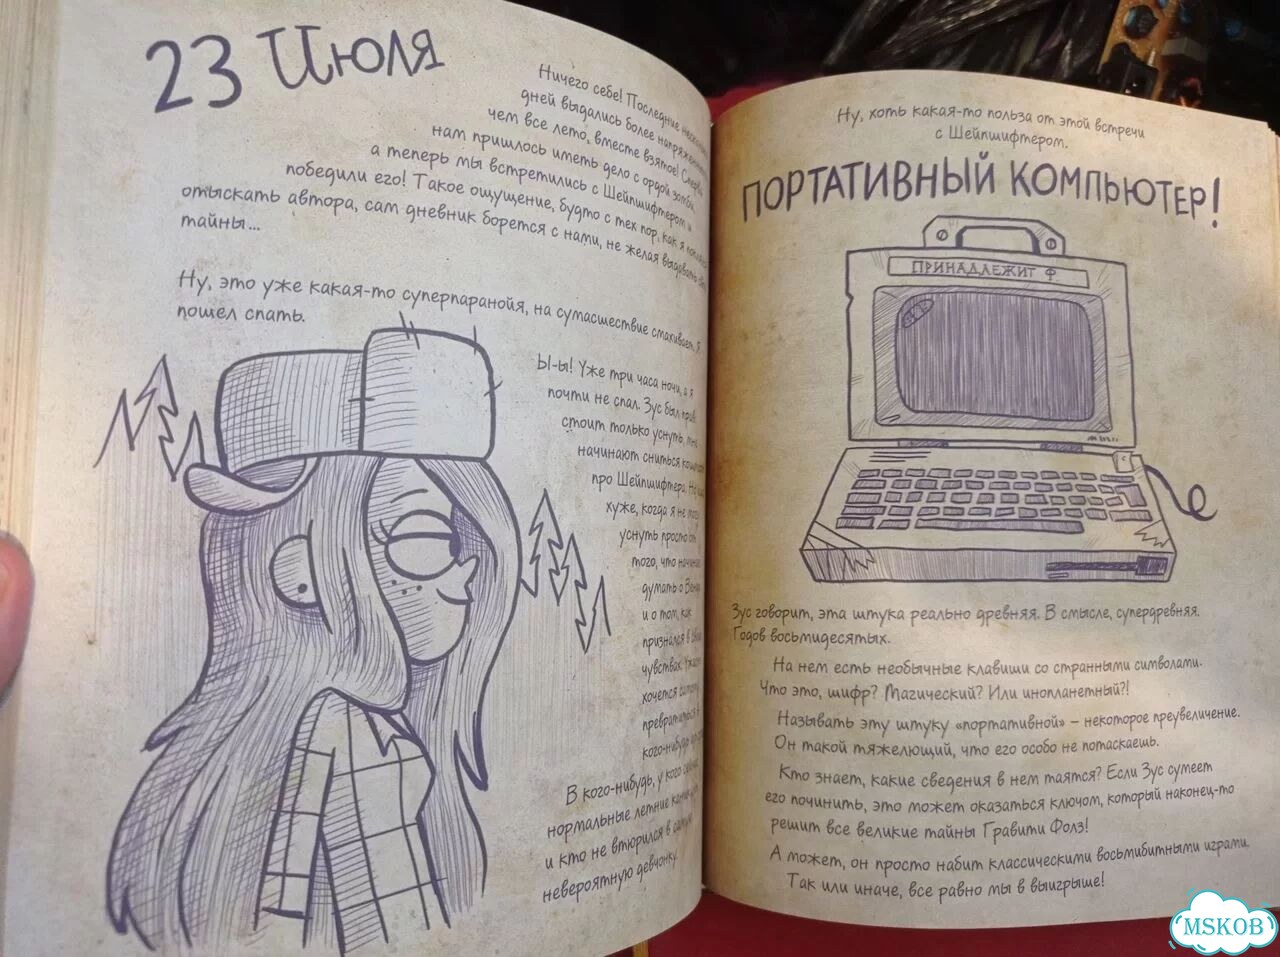 23 Июля
Ничего себе! Последние
дней выдались более
чем все лето, вместе взятое! Сперва
нам пришлось иметь дело с ордой зомби,
а теперь мы встретились с Шейпшифтером и
победили его! Такое ощущение, будто с тех пор, как я
отыскать автора, сам дневник борется с нами, не желая выдавать
тайны...
Ну, это уже какая-то суперпаранойя, на сумасшествие смахивает. Я
пошел спать.
Ы-ы! Уже три часа ночи, а я
почти не спал. Зус был прав:
стоит только уснуть, мне
начинают сниться
про Шейпшифтера. Но
хуже, когда я не могу
уснуть просто от
того, что начинаю
думать о
и о том, как
признался в
чувствах.
хочется
превратиться в
кого-нибудь
В кого-нибудь, у кого
нормальные летние
и кто не втюрился в самую
невероятную девчонку.
Ну, хоть какая-то польза от этой встречи
с Шейпшифтером.
ПОРТАТИВНЫЙ КОМПЬЮТЕР!
ПРИНАДЛЕЖИТ Ф.
Зус говорит, эта штука реально древняя. В смысле, супердревняя.
Годов восьмидесятых.
На нем есть необычные клавиши со странными символами.
Что это, шифр? Магический? Или инопланетный?!
Называть эту штуку «портативной» – некоторое преувеличение.
Он такой тяжелющий, что его особо не потаскаешь.
Кто знает, какие сведения в нем таятся? Если Зус сумеет
его починить, это может оказаться ключом, который наконец-то
решит все великие тайны Гравити Фолз!
А может, он просто набит классическими восьмибитными играми.
Так или иначе, все равно мы в выигрыше!
MSKOB